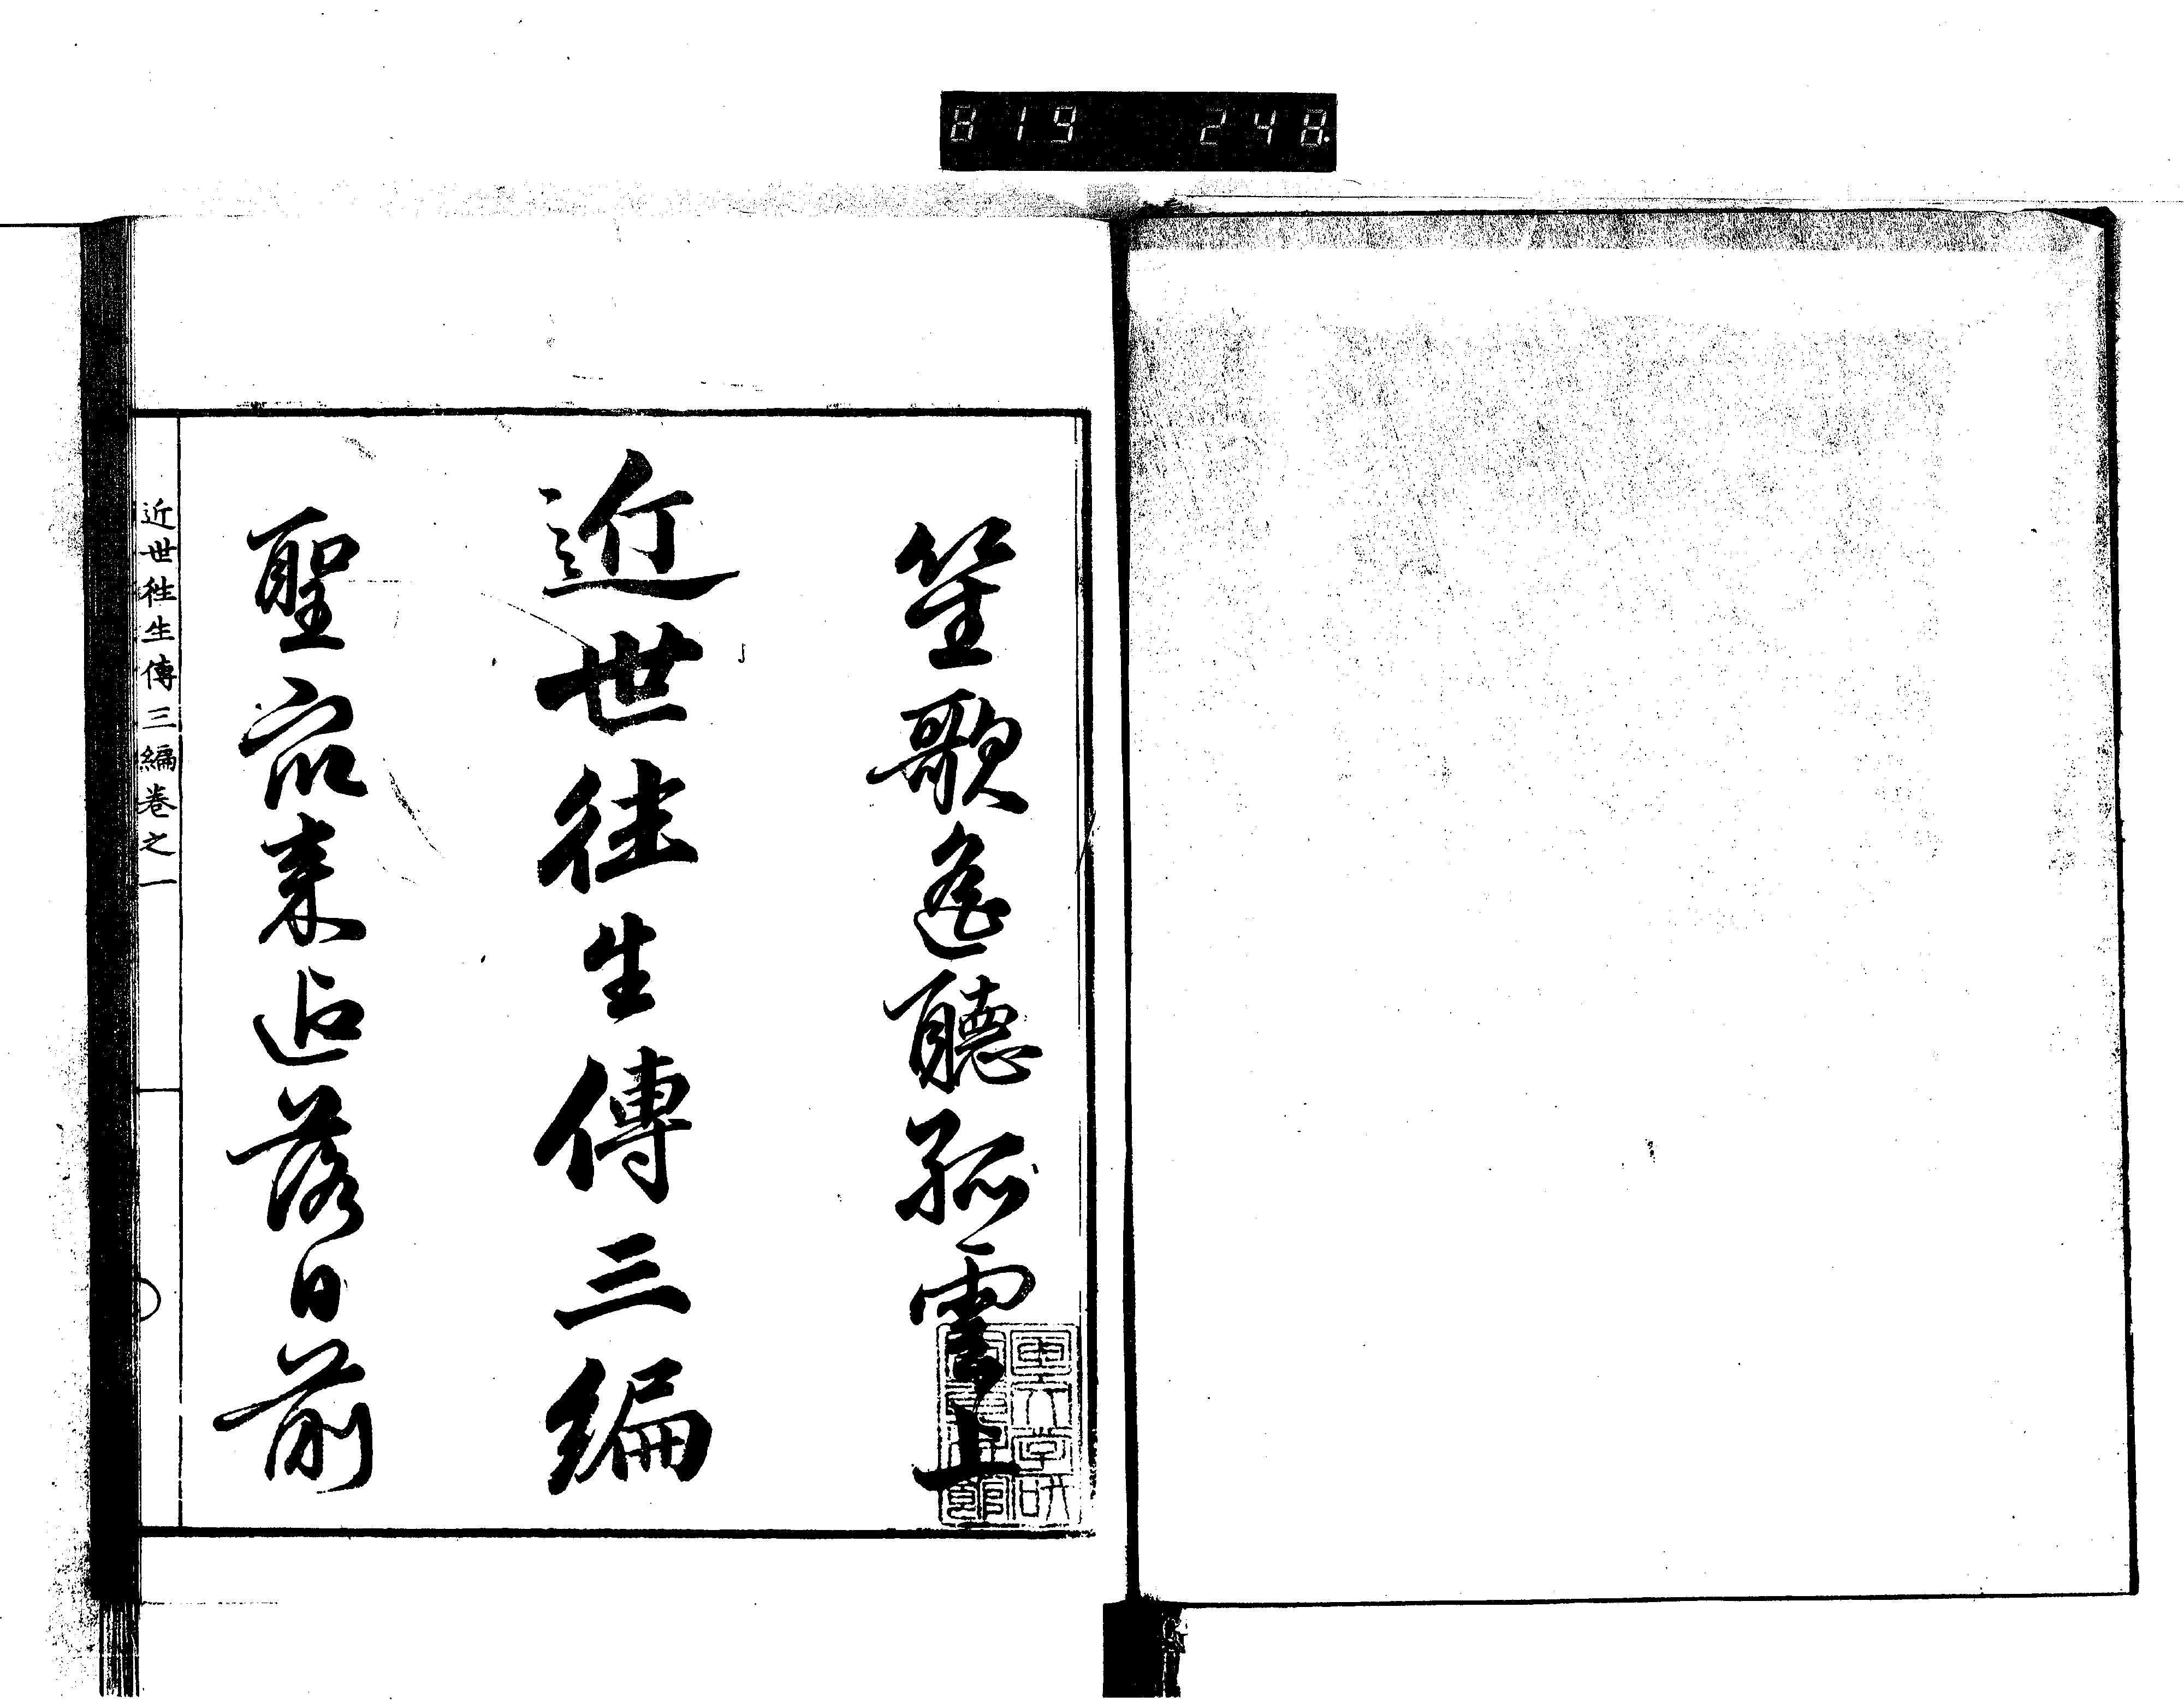 819 248
笙歌遙聽孤雲上
近世往生傳三編
聖衆来迎落日前
近世往生傳三編卷之一